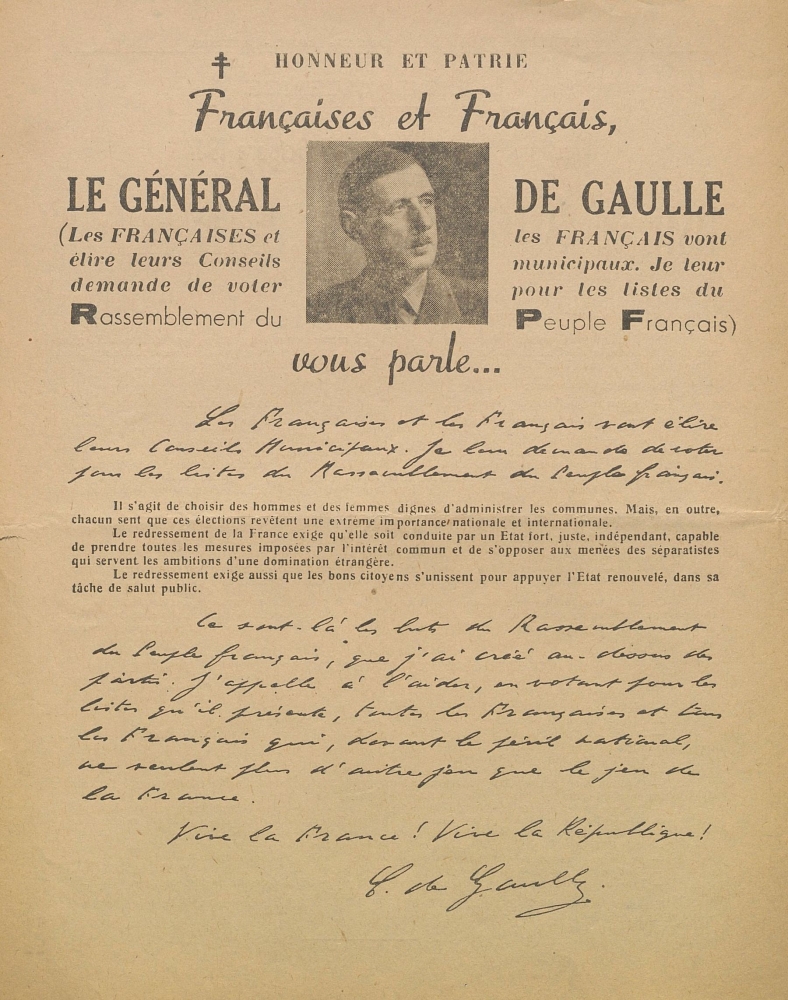 HONNEUR ET PATRIE
Françaises et Français,
LE GÉNÉRAL DE GAULLE
(Les FRANÇAISES et les FRANÇAIS vont
élire leurs Conseils municipaux. Je leur
demande de voter pour les listes du
Rassemblement du Peuple Français)
vous parle...
Les Françaises et les Français vont élire
leurs Conseils Municipaux. Je leur demande de voter
pour les listes du Rassemblement du Peuple français.
Il s'agit de choisir des hommes et des femmes dignes d'administrer les communes. Mais, en outre,
chacun sent que ces élections revêtent une extrême importance nationale et internationale.
Le redressement de la France exige qu'elle soit conduite par un Etat fort, juste, indépendant, capable
de prendre toutes les mesures imposées par l'intérêt commun et de s'opposer aux menées des séparatistes
qui servent les ambitions d'une domination étrangère.
Le redressement exige aussi que les bons citoyens s'unissent pour appuyer l'Etat renouvelé, dans sa
tâche de salut public.
Ce sont-là les buts du Rassemblement
du Peuple français, que j'ai créé au-dessus des
partis. J'appelle à l'aider, en votant pour les
listes qu'il présente, toutes les Françaises et tous
les Français qui, devant le péril national,
ne veulent plus d'autre jeu que le jeu de
la France.
Vive la France ! Vive la République !
C. de Gaulle.